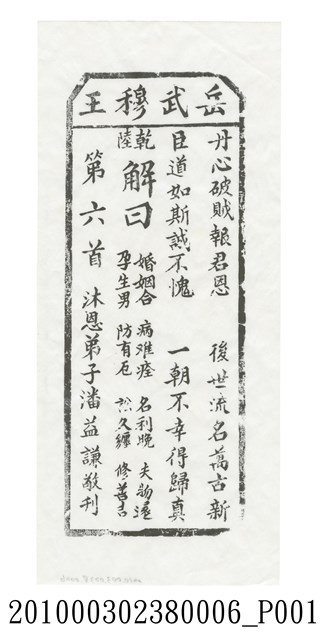 岳武穆王
丹心破賊報君恩 後世流名萬古新
臣道如斯誠不愧 一朝不幸得歸真
乾陸
解曰
婚姻合 病难痊 名利晚 失物遠
孕生男 防有厄 訟久纏 修善吉
第六首 沐恩弟子潘益謙敬刊
201000302380006_P001